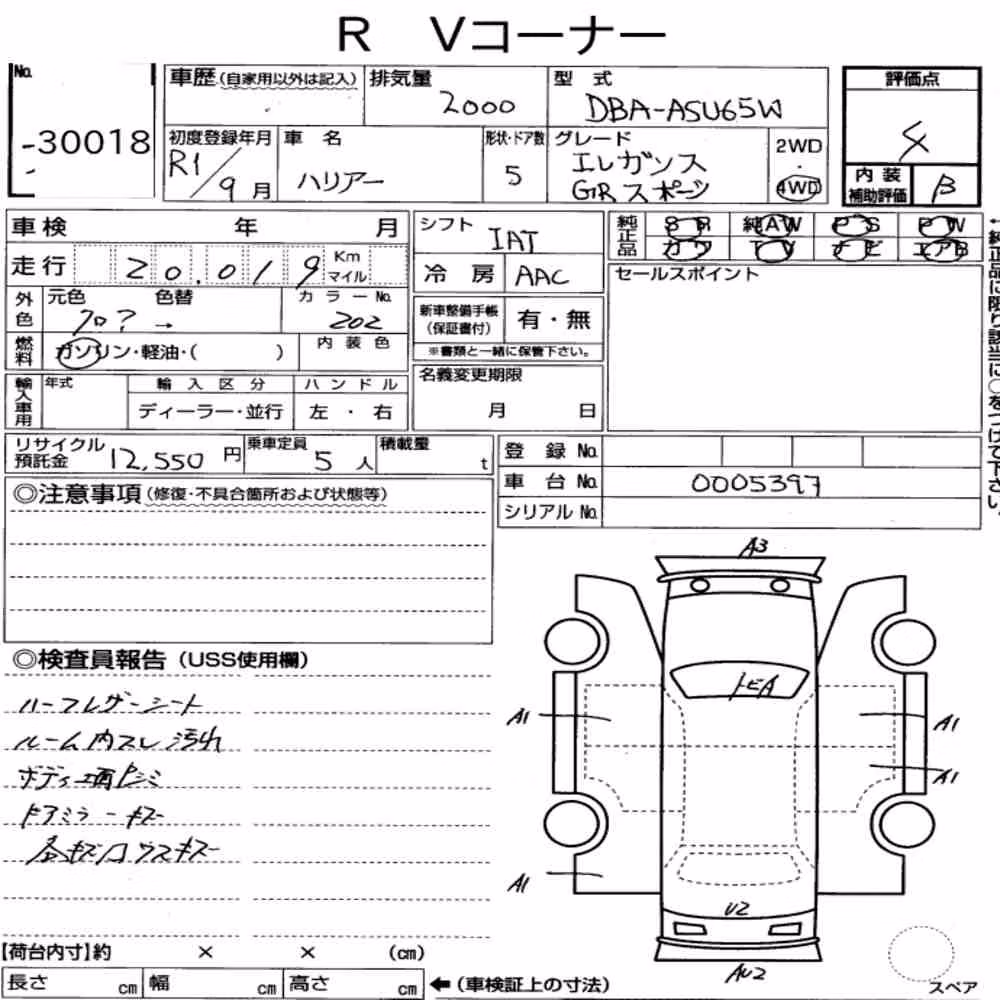 R Vコーナー
No.
-30018
車歴(自家用以外は記入)
排気量
2000
型式
DBA-ASU65W
評価点
4
初度登録年月
R1/9月
車名
ハリアー
形状・ドア数
5
グレード
エレガンス
GRスポーツ
2WD
・
4WD
内装
補助評価
B
車検 年 月
シフト
IAT
純正品
SR 純AW PS PW
カワ TV ナビ エアB
←純正品に限り該当に○をつけて下さい。
走行 20,019 Km
マイル
冷房 AAC
セールスポイント
外色
元色 色替
クロ? →
カラーNo.
202
新車整備手帳
(保証書付)
有・無
※書類と一緒に保管下さい。
燃料
ガソリン・軽油・( )
内装色
輸入車用
年式
輸入区分
ディーラー・並行
ハンドル
左・右
名義変更期限
月 日
リサイクル
預託金
12,550円
乗車定員
5人
積載量
t
登録No.
車台No. 0005397
シリアルNo.
◎注意事項(修復・不具合箇所および状態等)
◎検査員報告(USS使用欄)
ハーフレザーシート
ルーム内スレ汚れ
ドアミラーキズ
A3
トビA
A1
A1
A1
A1
U2
AU2
スペア
【荷台内寸】約 × × (cm)
長さ cm 幅 cm 高さ cm
←(車検証上の寸法)